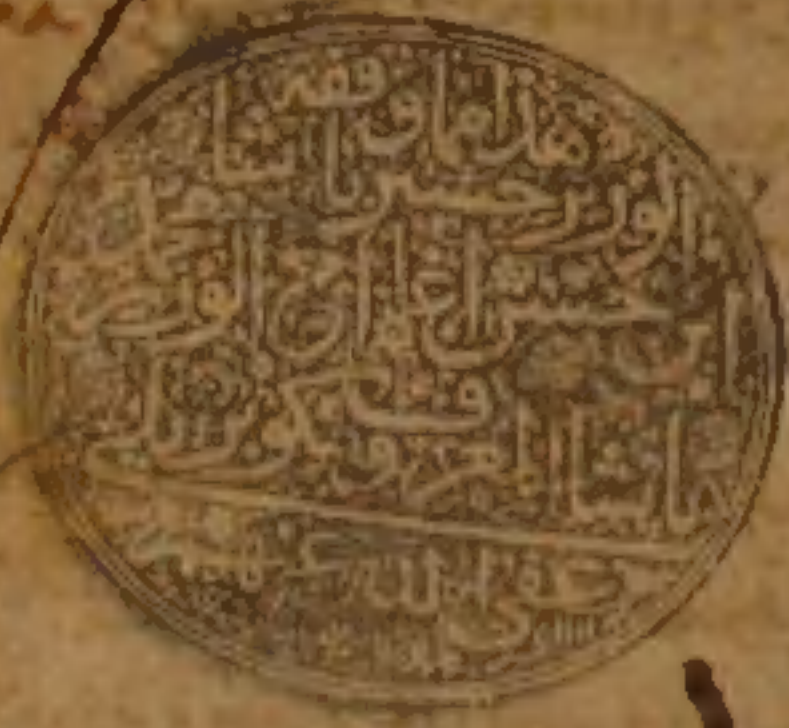 هذا مما وقفه
الوزير حسين باشا
ابن حسن اغا اخ الوزير
باشا المعروف بكوبريلي
عفى الله عنهم